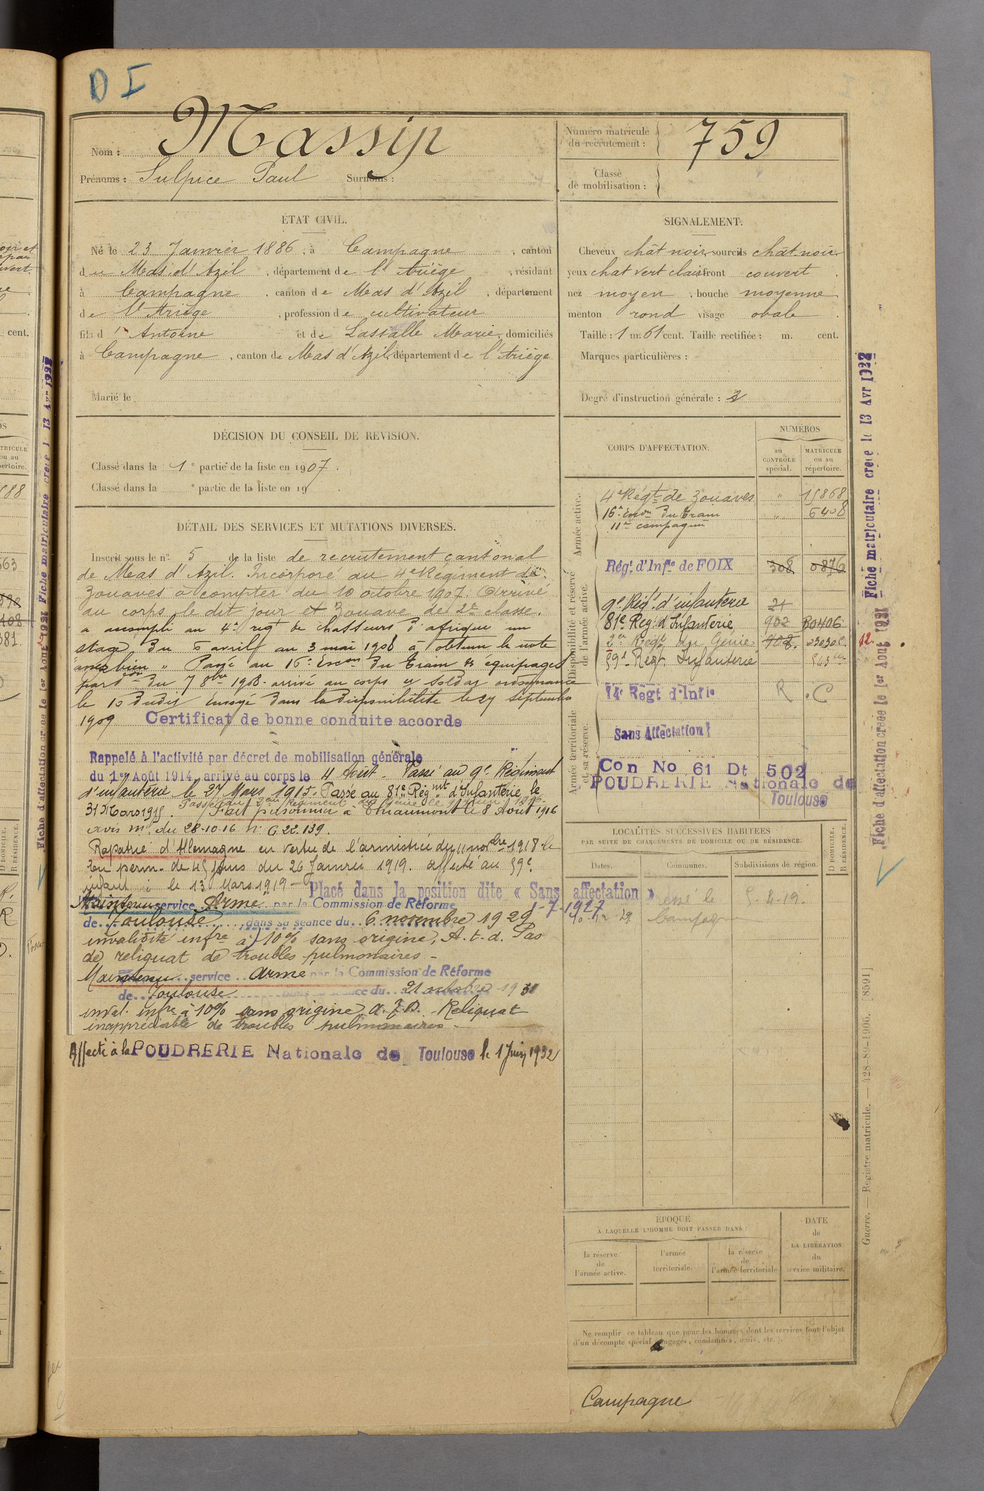 D I
Nom : Massip
Prénoms : Sulpice Paul Surnoms :
Numéro matricule du recrutement : 759
Classe de mobilisation :
ÉTAT CIVIL.
Né le 23 Janvier 1886, à Campagne, canton
du Mas d'Azil, département de l'Ariège, résidant
à Campagne, canton de Mas d'Azil, département
de l'Ariège, profession de cultivateur
fils d'Antoine et de Lassalle Marie, domiciliés
à Campagne, canton de Mas d'Azil département de l'Ariège
Marié le
SIGNALEMENT.
Cheveux chât noir, sourcils chât noir
yeux chat vert clair front couvert
nez moyen, bouche moyenne
menton rond visage ovale
Taille : 1 m. 61 cent. Taille rectifiée : m. cent.
Marques particulières :
Degré d'instruction générale : 3
DÉCISION DU CONSEIL DE RÉVISION.
Classé dans la 1e partie de la liste en 1907.
Classé dans la e partie de la liste en 19
DÉTAIL DES SERVICES ET MUTATIONS DIVERSES.
Inscrit sous le n° 5 de la liste de recrutement cantonal
de Mas d'Azil. Incorporé au 4e Régiment de
Zouaves à compter du 10 octobre 1907. Arrivé
au corps le dit jour et Zouave de 2e classe.
a accompli au 4e regt de chasseurs d'afrique un
stage du 6 avril au 3 mai 1908 a obtenu la note
" Passé au 16e Escon du Train des équipages
du 7 8bre 1908. arrivé au corps et soldat ordonnance
le 10 dudit envoyé dans la disponibilité le 27 septembre
1909 Certificat de bonne conduite accordé
Rappelé à l'activité par décret de mobilisation générale
du 1er Août 1914, arrivé au corps le 11 Août. Passé au 9e Régiment
d'infanterie le 27 Mars 1915. Passé au 81e Régimt d'Infanterie le
31 Mars 1915. Fait prisonnier à Thiaumont le 8 Août 1916
avis ml. du 28-10-16 N° G 22.139.
Rapatrié d'Allemagne en vertu de l'armistice du 11 novbre 1918 le
En perm. de 45 jours du 26 Janvier 1919. affecté au 59e
infant ie le 13 Mars 1919 - Placé dans la position dite « Sans affectation »
1-7-1927
Maintenu service Armé par la Commission de Réforme
de Toulouse dans sa séance du 6 novembre 1929
invalidité infre à 10% sans origine, A.t.d. Pas
de reliquat de troubles pulmonaires -
Maintenu service armé par la Commission de Réforme
de Toulouse séance du 21 19
inval. infre à 10% sans origine Reliquat
inappréciable de troubles pulmonaires -
Affecté à la POUDRERIE Nationale de Toulouse le 1 Juin 1932
CORPS D'AFFECTATION.
NUMÉROS
au CONTRÔLE spécial.
MATRICULE ou au répertoire.
Armée active.
4e Régt de Zouaves " 15868
16e Escon du Train " 6408
11e compagnie
Disponibilité et réserve de l'armée active.
Régt d'Infie de FOIX 308 0876
9e Régt d'infanterie 21
81e Régt d'Infanterie 902 20406
2e Régt du Génie
59e Régt Infanterie
Armée territoriale et sa réserve.
14e Régt d'Infie R . C
Sans Affectation
Con No 61 Dt 502
POUDRERIE Nationale de
Toulouse
LOCALITÉS SUCCESSIVES HABITÉES
PAR SUITE DE CHANGEMENTS DE DOMICILE OU DE RÉSIDENCE.
Dates. Communes. Subdivisions de région. D. DOMICILE. R. RÉSIDENCE.
Campagne
ÉPOQUE
À LAQUELLE L'HOMME DOIT PASSER DANS
la réserve de l'armée active.
l'armée territoriale.
la réserve de l'armée territoriale
DATE de LA LIBÉRATION du service militaire.
Ne remplir ce tableau que pour les hommes dont les services font l'objet
d'un décompte spécial (engagés, condamnés, omis, etc.).
Campagne
Fiche d'affectation créée le 1er Août 1921 Fiche matriculaire créée le 13 Avr 1922
12
Guerre. — Registre matricule. — 428-80-1906. [8591]